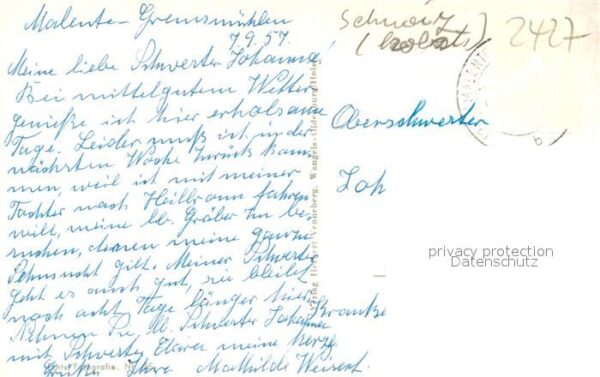 Malente-Gremsmühlen
7.9.57.
Meine liebe Schwester Johanna!
Bei mittelgutem Wetter
genieße ich hier erholsame
Tage. Leider muß ich in der
nächsten Woche zurück kom-
men, weil ich mit meiner
Tochter nach Heilbronn fahren
will, meine lb. Gräber zu be-
suchen, denen meine ganze
Sehnsucht gilt. Meiner Schwester
geht es auch gut, sie bleibt
noch acht Tage länger hier.
Nehmen Sie, lb. Schwester Johanna
mit Schwester Clara meine herzl.
Grüße Ihre Mathilde
Schwarz
2427
MALENTE
b
Oberschwester
Joh
Kranke
Verlag Herbert Wangels-Oldenburg/Holst.
Echte Fotografie. Nr.
privacy protection
Datenschutz